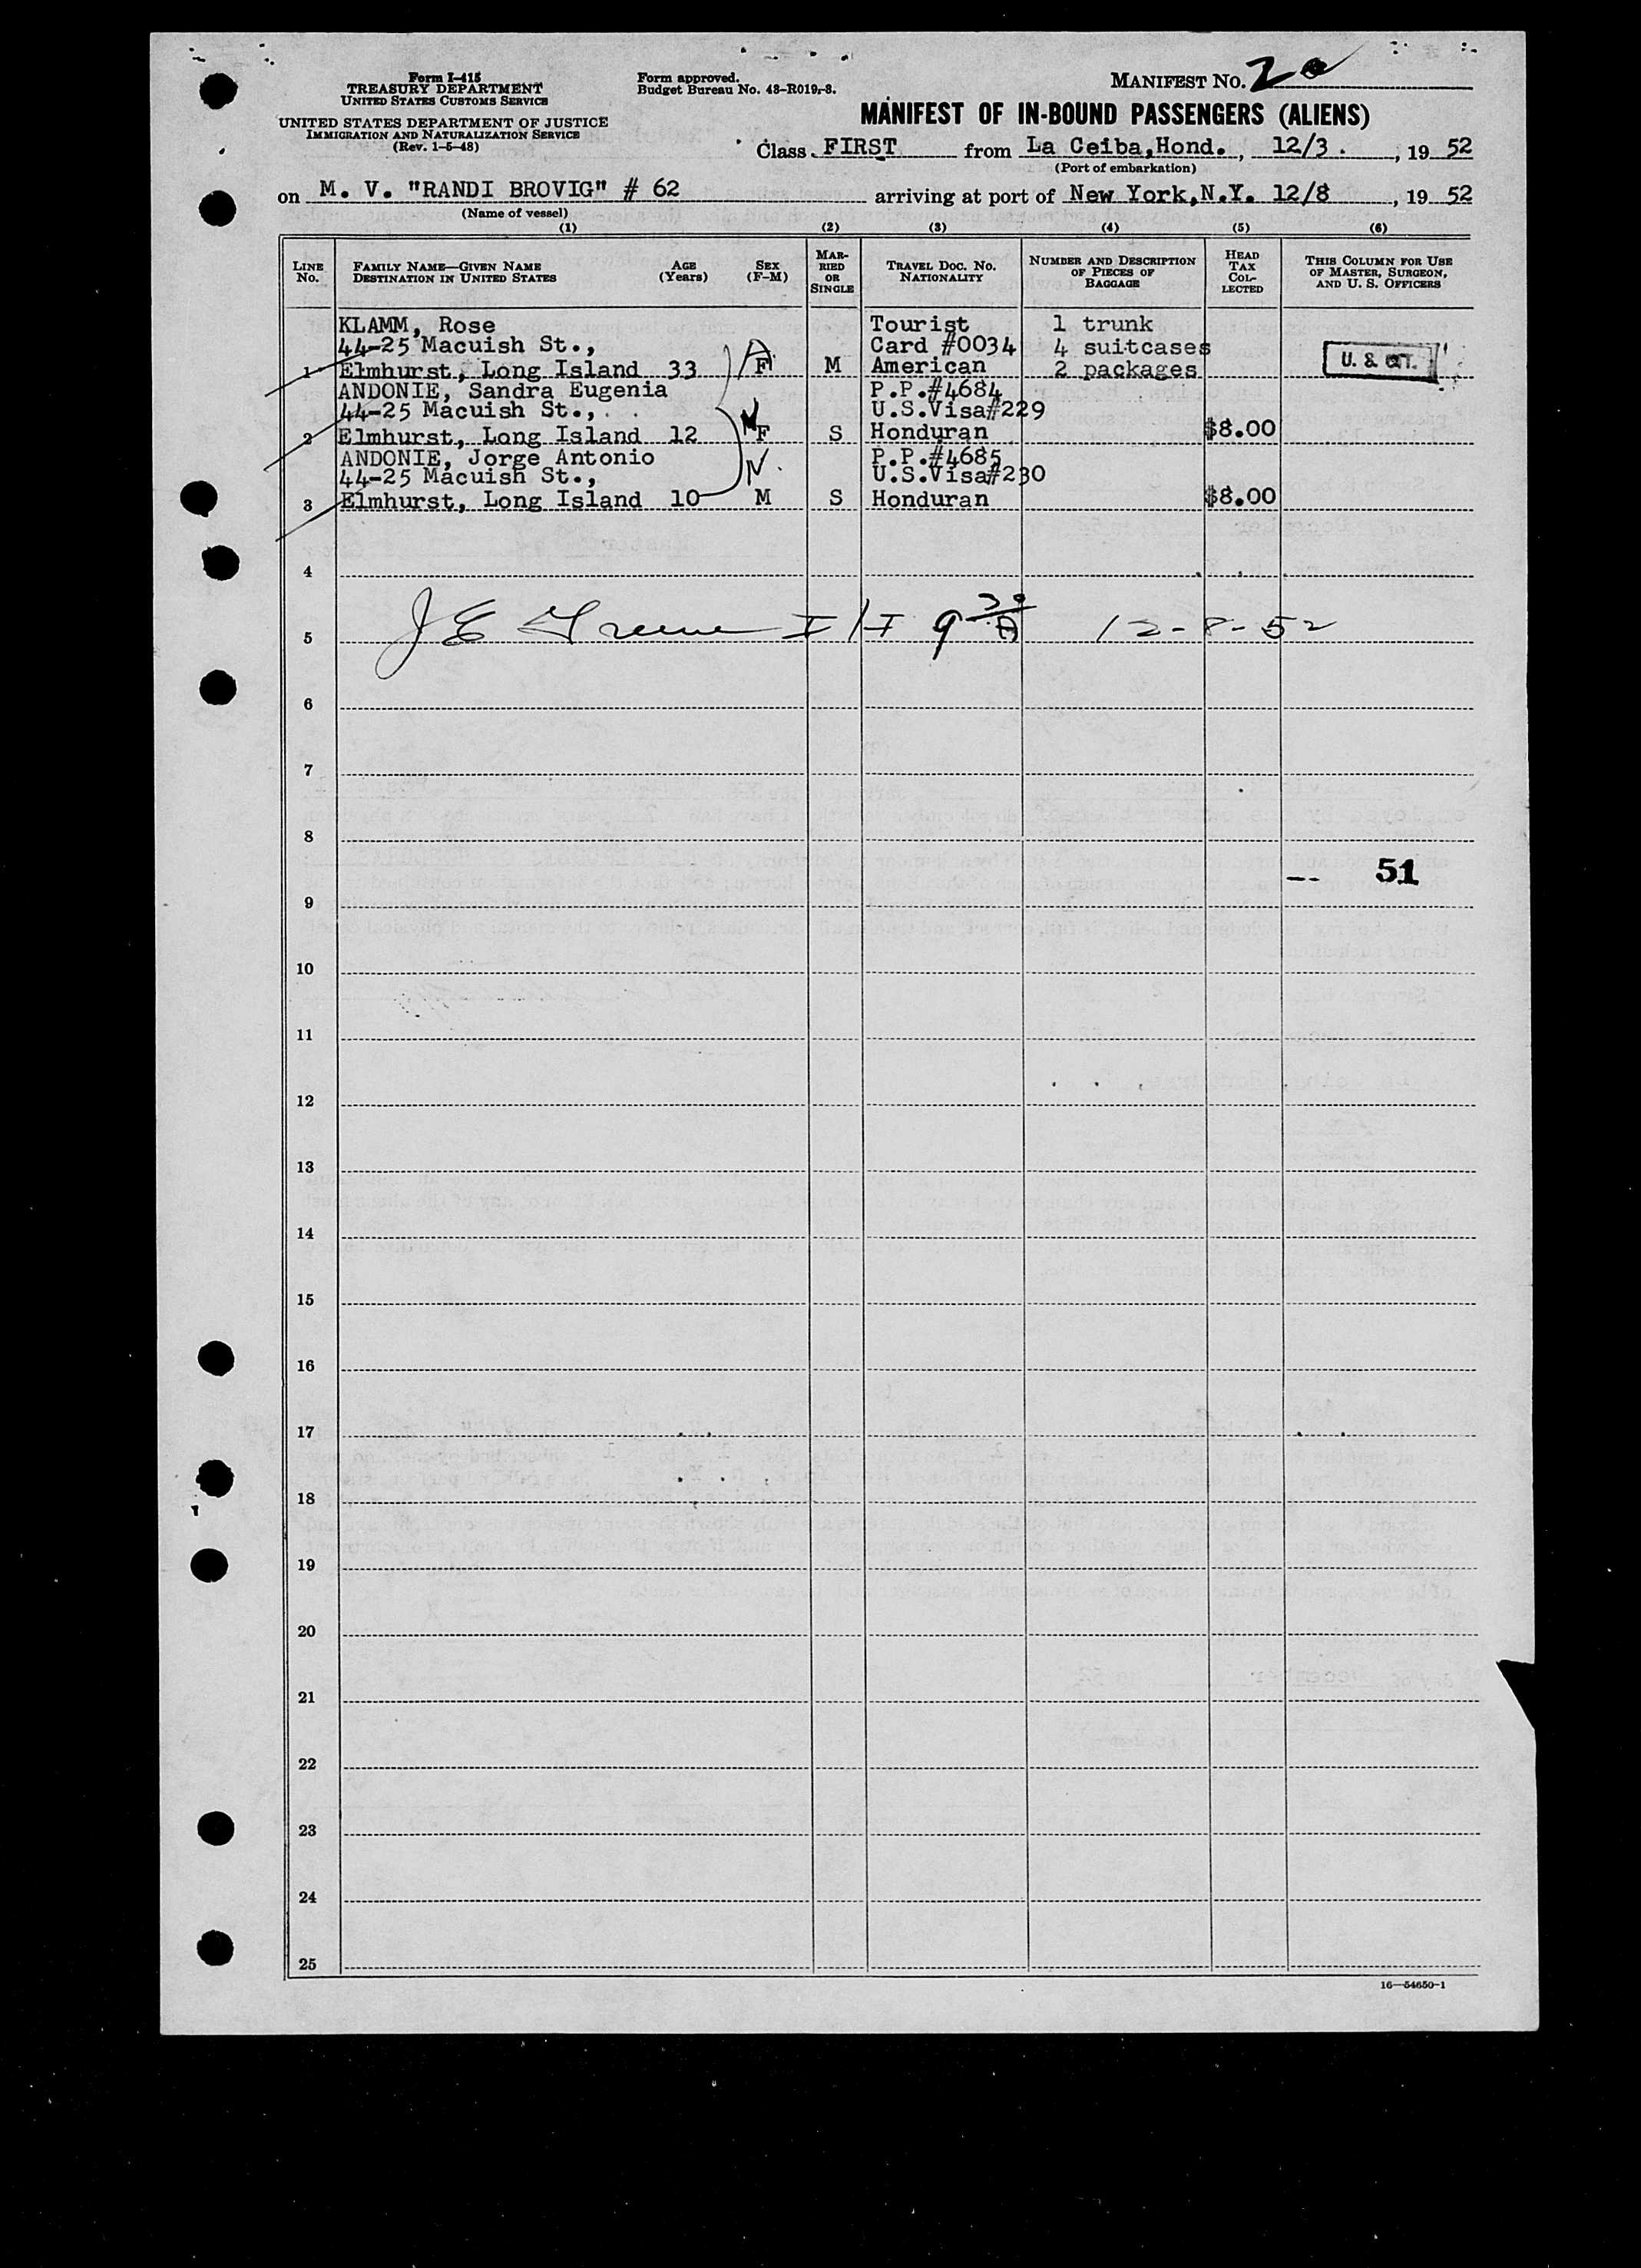 Form I-415
TREASURY DEPARTMENT
UNITED STATES CUSTOMS SERVICE
UNITED STATES DEPARTMENT OF JUSTICE
IMMIGRATION AND NATURALIZATION SERVICE
(Rev. 1-5-48)
Form approved.
Budget Bureau No. 43-R019.-3.
MANIFEST No. 2
MANIFEST OF IN-BOUND PASSENGERS (ALIENS)
Class FIRST from La Ceiba,Hond., 12/3., 19 52
(Port of embarkation)
on M. V. "RANDI BROVIG" # 62 arriving at port of New York,N.Y. 12/8, 19 52
(Name of vessel)
(1) (2) (3) (4) (5) (6)
LINE No. FAMILY NAME—GIVEN NAME DESTINATION IN UNITED STATES AGE (Years) SEX (F-M) MARRIED OR SINGLE TRAVEL DOC. NO. NATIONALITY NUMBER AND DESCRIPTION OF PIECES OF BAGGAGE HEAD TAX COLLECTED THIS COLUMN FOR USE OF MASTER, SURGEON, AND U. S. OFFICERS
KLAMM, Rose Tourist 1 trunk
44-25 Macuish St., Card #0034 4 suitcases
1 Elmhurst, Long Island 33 F M American 2 packages
ANDONIE, Sandra Eugenia P.P.#4684
44-25 Macuish St., U.S.Visa#229
2 Elmhurst, Long Island 12 F S Honduran $8.00
ANDONIE, Jorge Antonio P.P.#4685
44-25 Macuish St., U.S.Visa#230
3 Elmhurst, Long Island 10 M S Honduran $8.00
4
J E Greene I/I 9 30 A 12-8-52
5
6
7
8
-- 51
9
10
11
12
13
14
15
16
17
18
19
20
21
22
23
24
25
16—54650-1